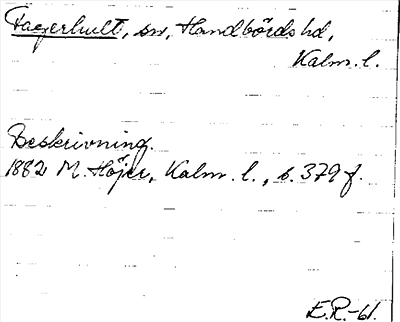 Fagerhult, sn, Handbörds hd,
Kalm. l.
Beskrivning.
1882 M. Höjer, Kalm. l., s. 379 f.
E.R.-61.